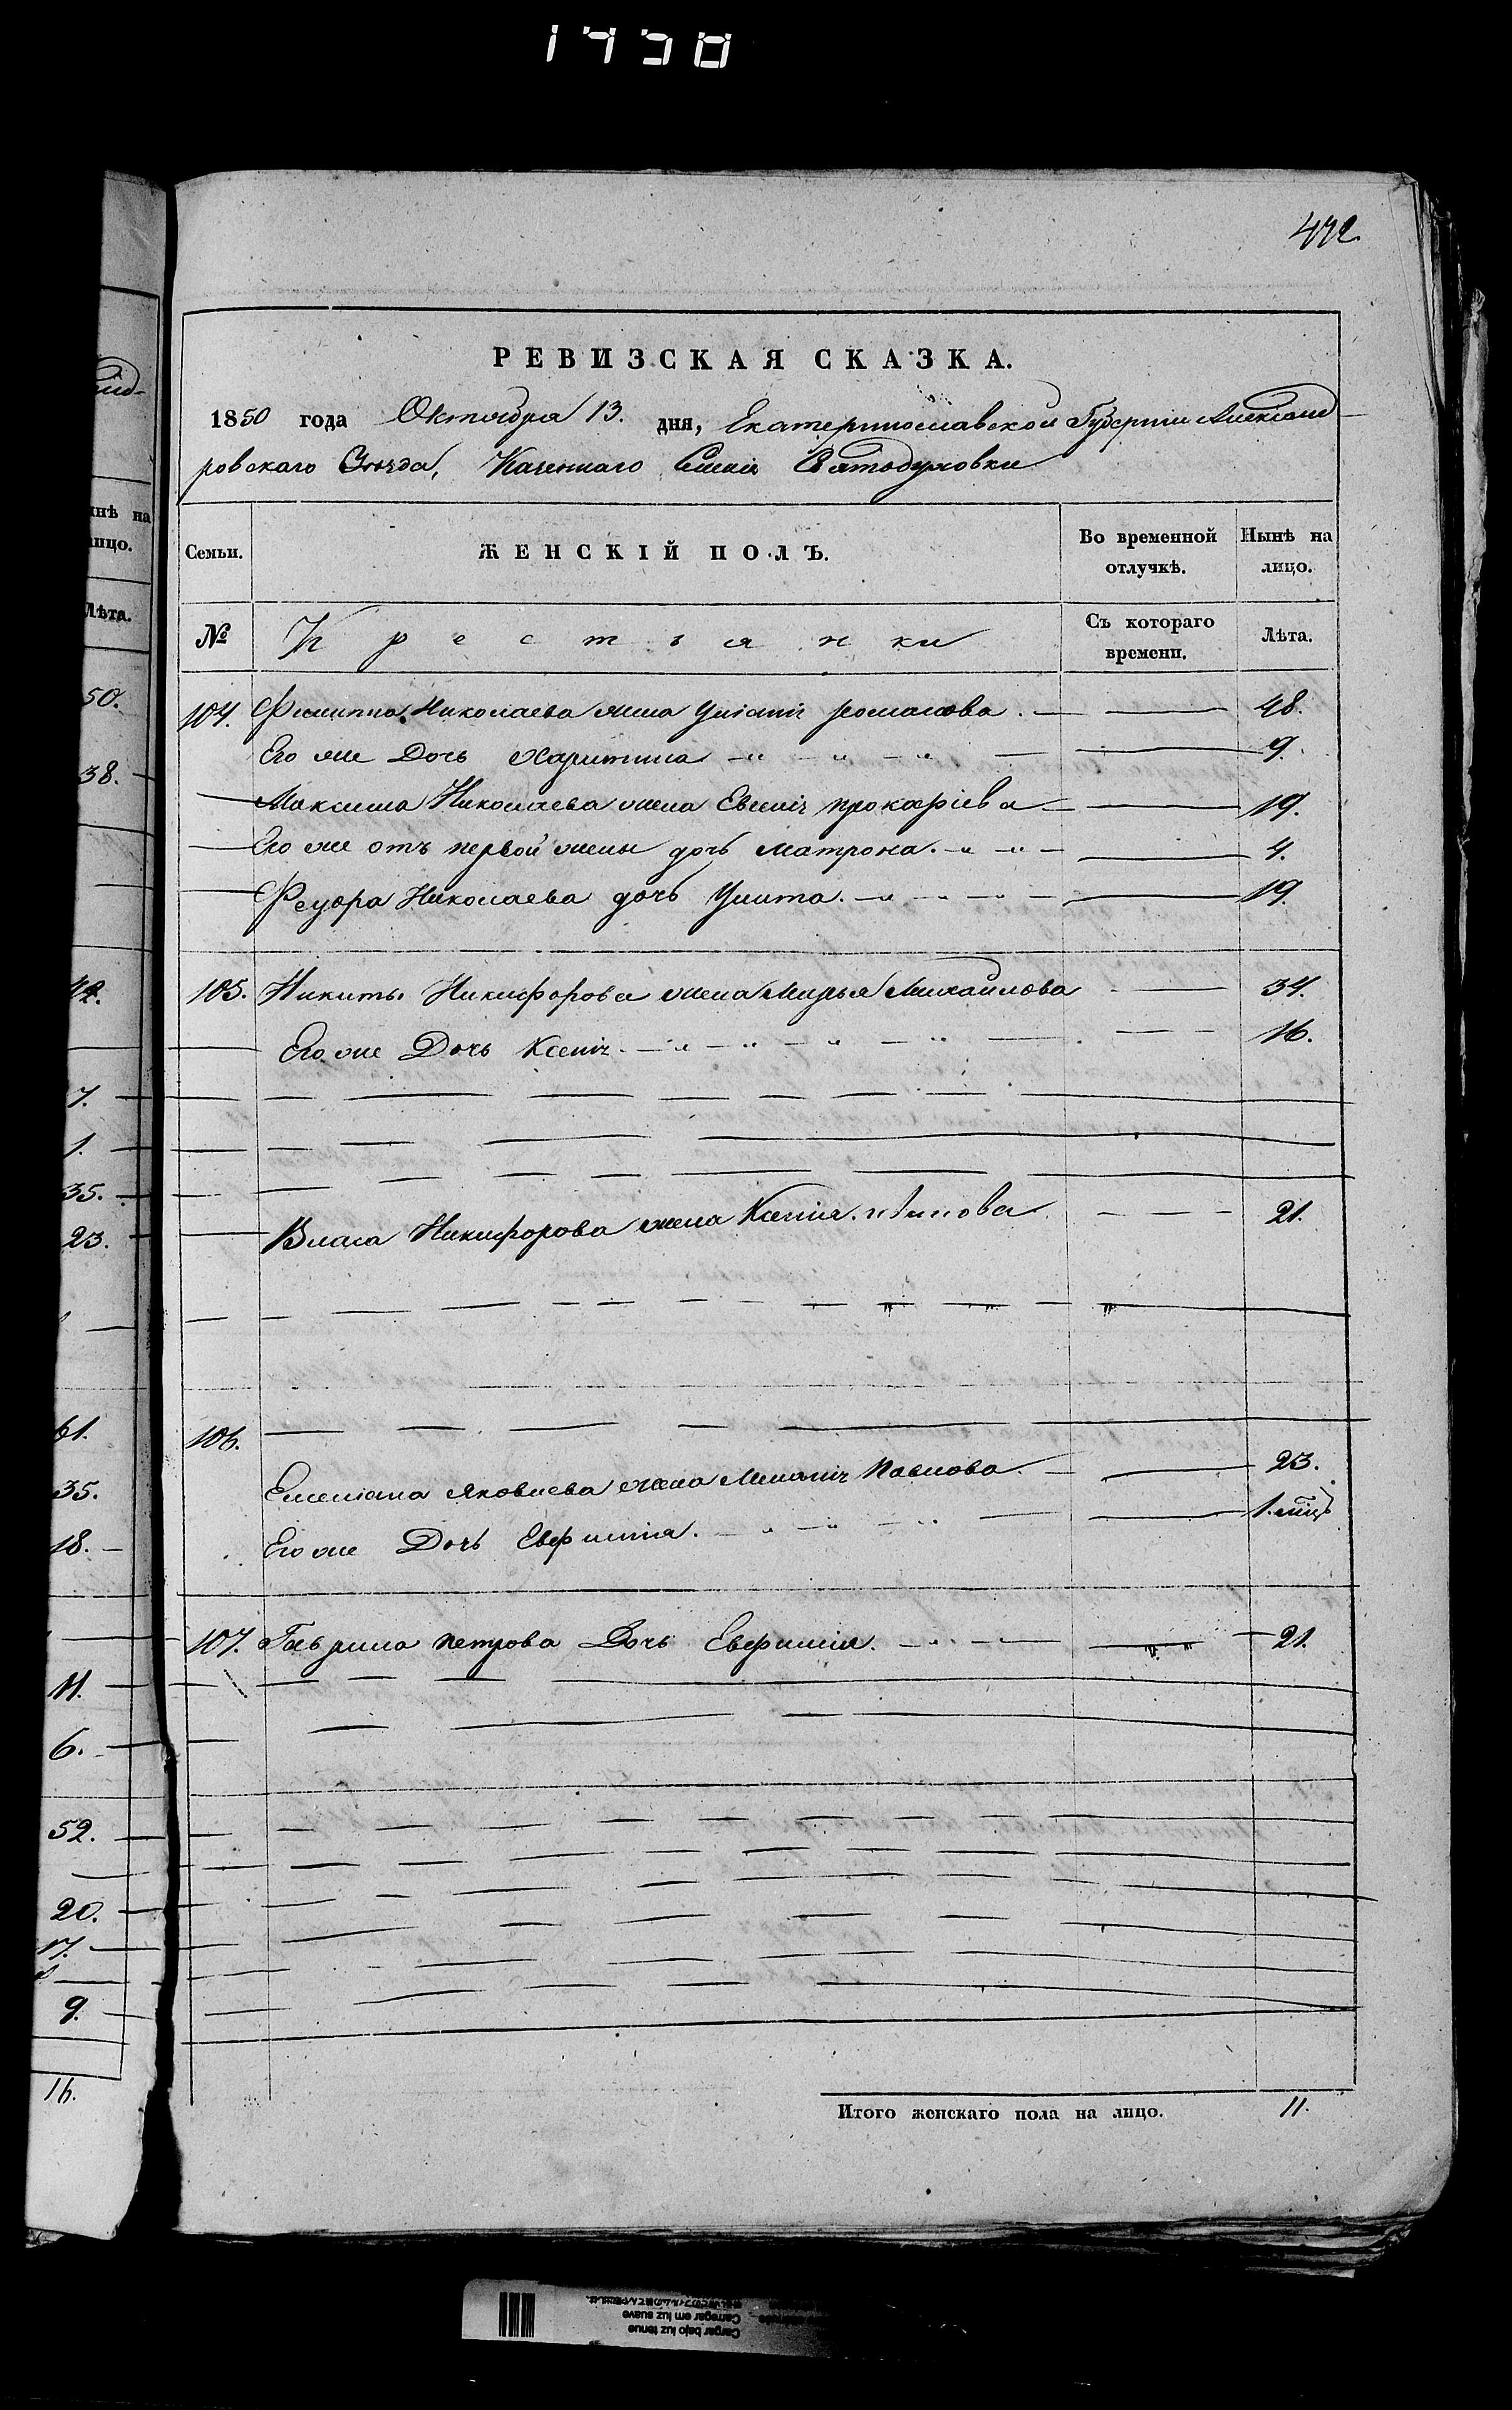 472.
РЕВИЗСКАЯ СКАЗКА.
1850 года Октября 13. дня, Екатеринославской Губерніи Александ-
ровскаго Уѣзда, Казеннаго Селенія Святодуховки
Семьи. ЖЕНСКІЙ ПОЛЪ. Во временной отлучкѣ. Нынѣ на лицо.
№ Крестьянки Съ котораго времени. Лѣта.
104. Филиппа Николаева жена Уліанія Романова. 48.
Его же Дочь Харитина 9.
Максима Николаева жена Евгенія Прокофіева 19.
Его же отъ первой жены дочь Матрона. 4.
Федора Николаева дочь Улита. 19.
105. Никиты Никифорова жена Марья Михайлова 34.
Его же Дочь Ксенія. 16.
Власа Никифорова жена Ксенія 21.
106.
Емеліана Яковлева жена Меланія Павлова. 23.
Его же Дочь Евфимія. 1. мѣц
107. Гаврила Петрова Дочь Евфимія. 21.
Итого женскаго пола на лицо. 11.
инѣ на
лицо.
Лѣта.
50.
38.
42.
7.
1.
35.
23.
61.
35.
18.
11.
6.
52.
20.
17.
9.
16.
Cargar bajo luz tenue
Carregar em luz suave